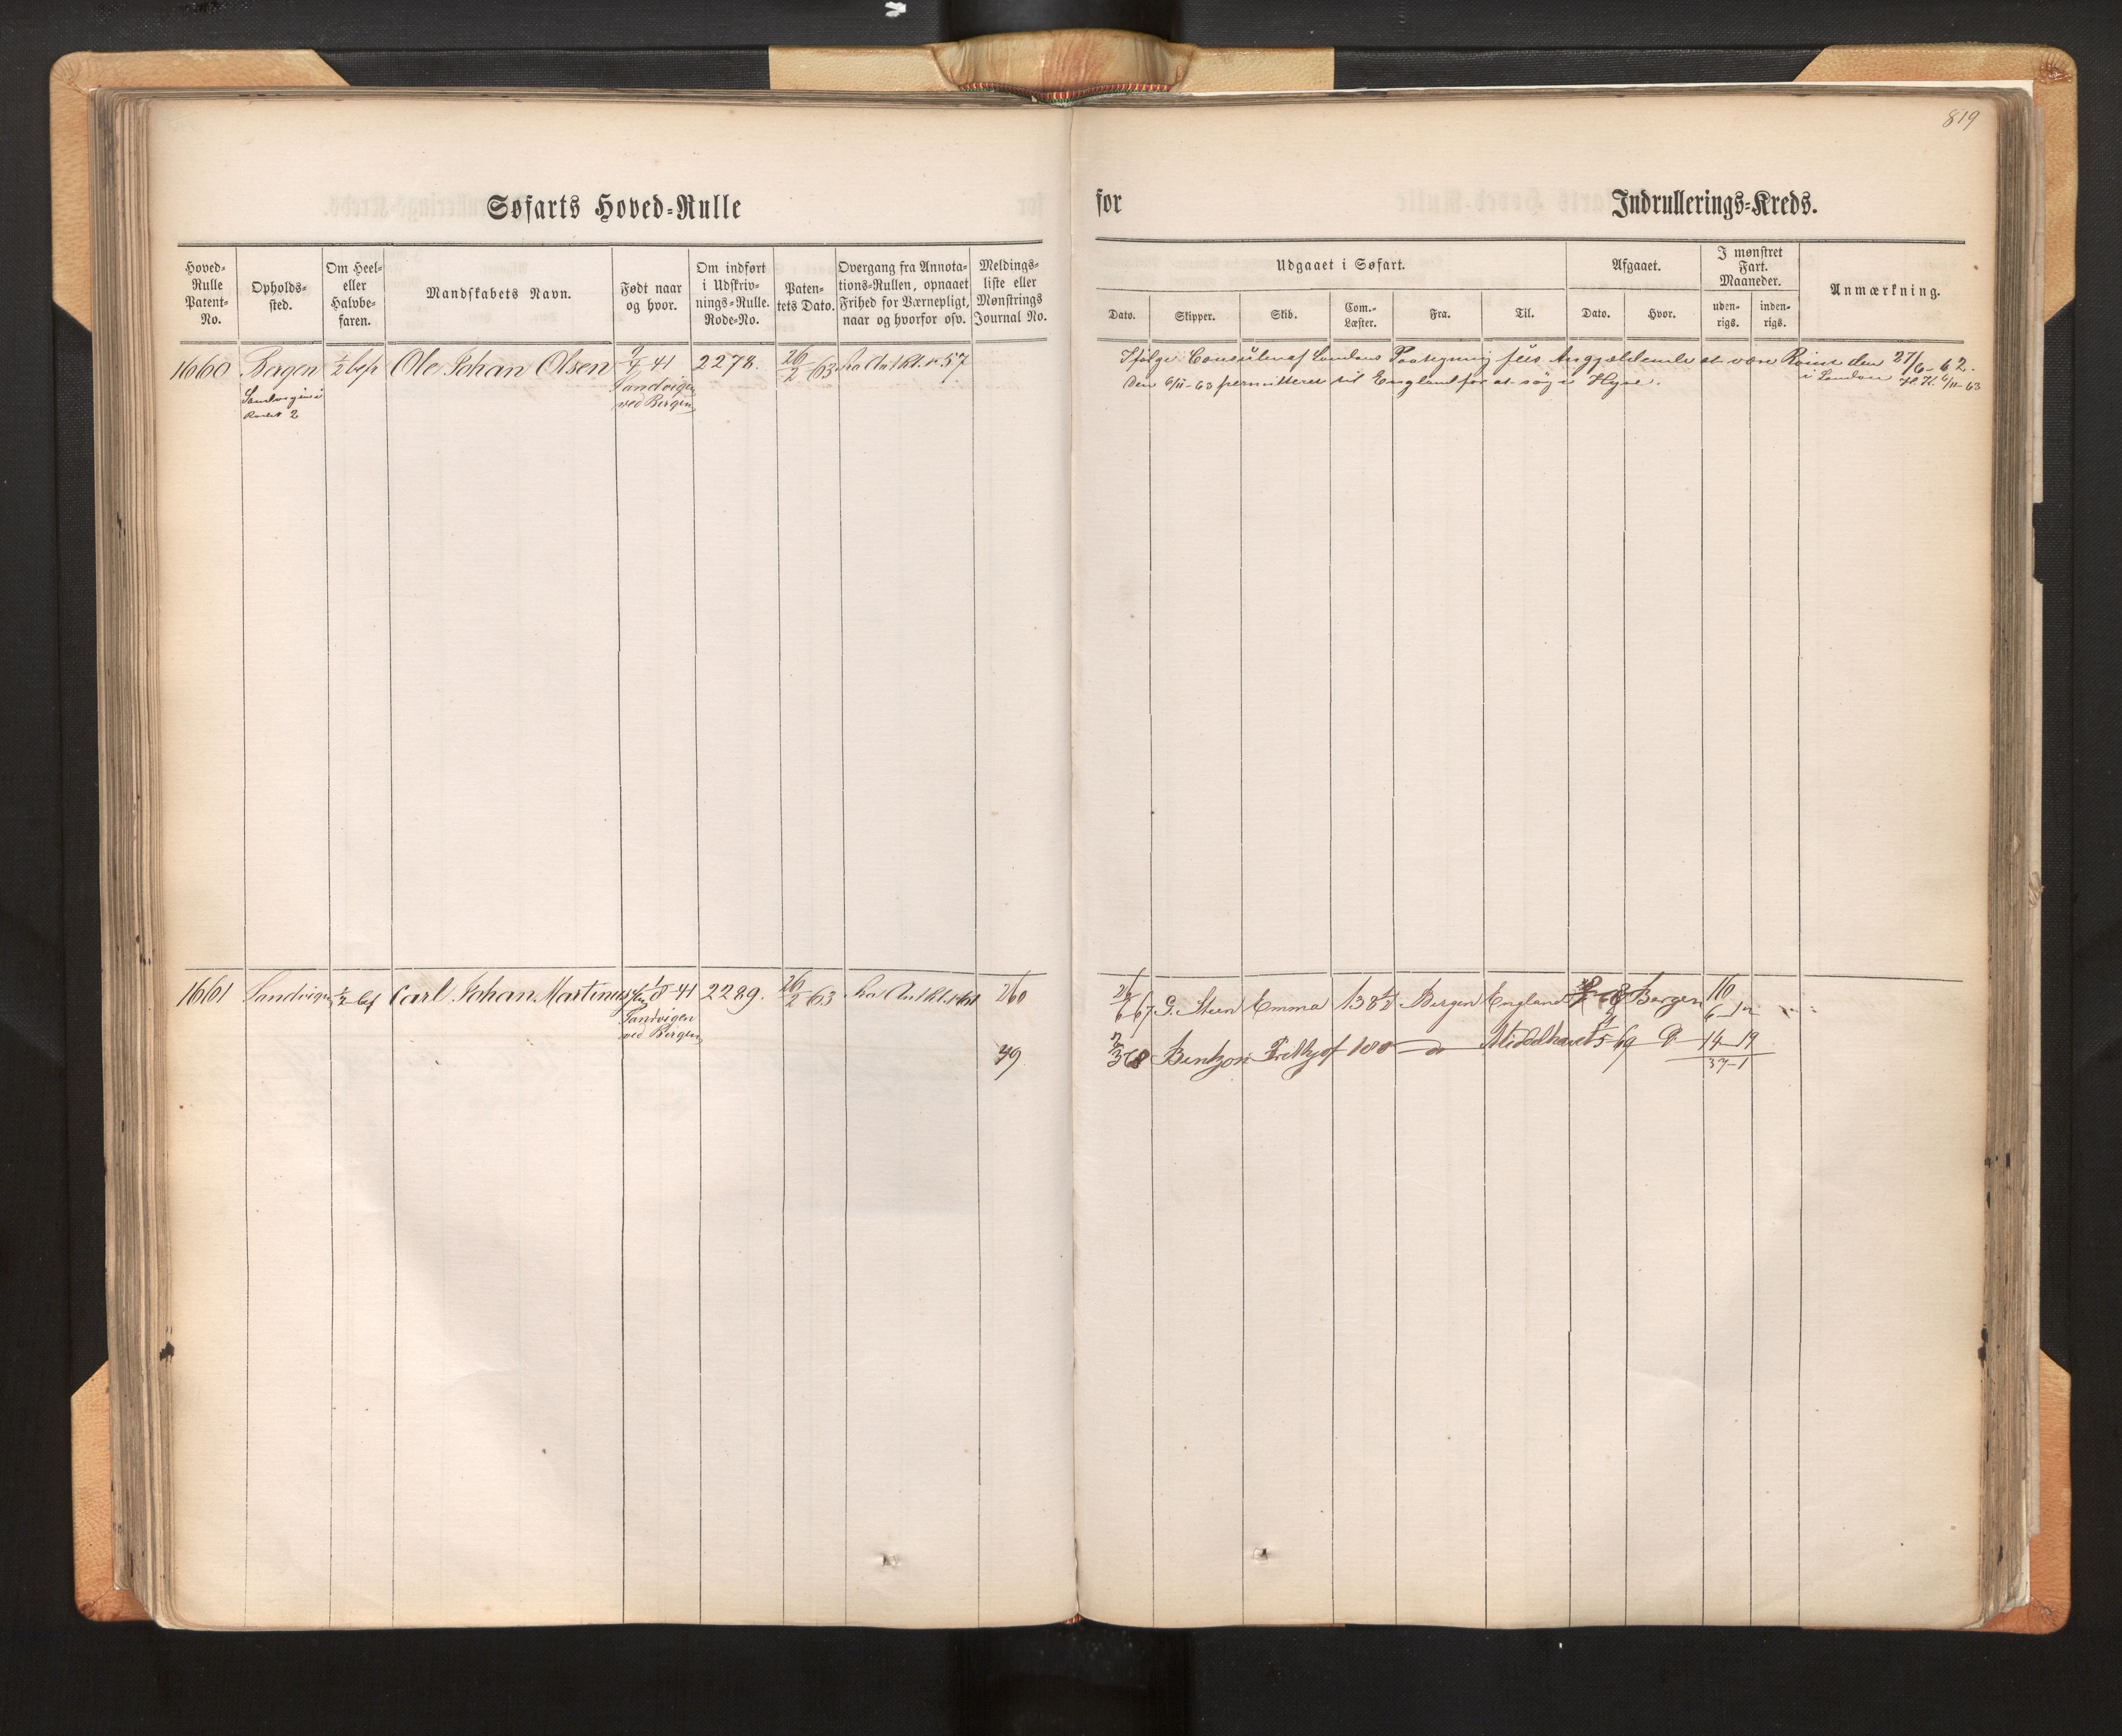 819
Søfarts Hoved-Rulle
for
Indrullerings-Kreds.
Hoved-
Rulle
Patent-
No.
Opholds-
sted.
Om Heel-
eller
Halvbe-
faren.
Mandskabets Navn.
Født naar
og hvor.
Om indført
i Udskriv-
nings-Rulle.
Rode-No.
Paten-
tets Dato.
Overgang fra Annota-
tions-Rullen, opnaaet
Frihed for Værnepligt,
naar og hvorfor osv.
Meldings-
liste eller
Mønstrings
Journal No.
Udgaaet i Søfart.
Afgaaet.
I mønstret
Fart.
Maaneder.
Anmærkning.
Dato.
Skipper.
Skib.
Com.-
Læster.
Fra.
Til.
Dato.
Hvor.
uden-
rigs.
inden-
rigs.
1660 Bergen ½ bef Ole Johan Olsen 9/4 41 2278. 26/2 63 fra An Rl. 57
Sandvigen
Rode 2
Sandvigen
ved Bergen
Ifølge Consulen af Londons Paategning Angjældende at være Rømt den 27/6-62.
i London
Den 6/11-63 permitteret til England for at søge Hyre.
6/11-63
1661 Sandvigen ½ bef Carl Johan Martinus 8 41 2289. 26/2 63 fra An Rl. 260
Sandvigen
ved Bergen
26/6 67 G. Steen Emma 138½ Bergen England Bergen 16
6
49
3 68 Bentzon Fridthjof 100 do Middelhavet 5 69 14-19
37-1